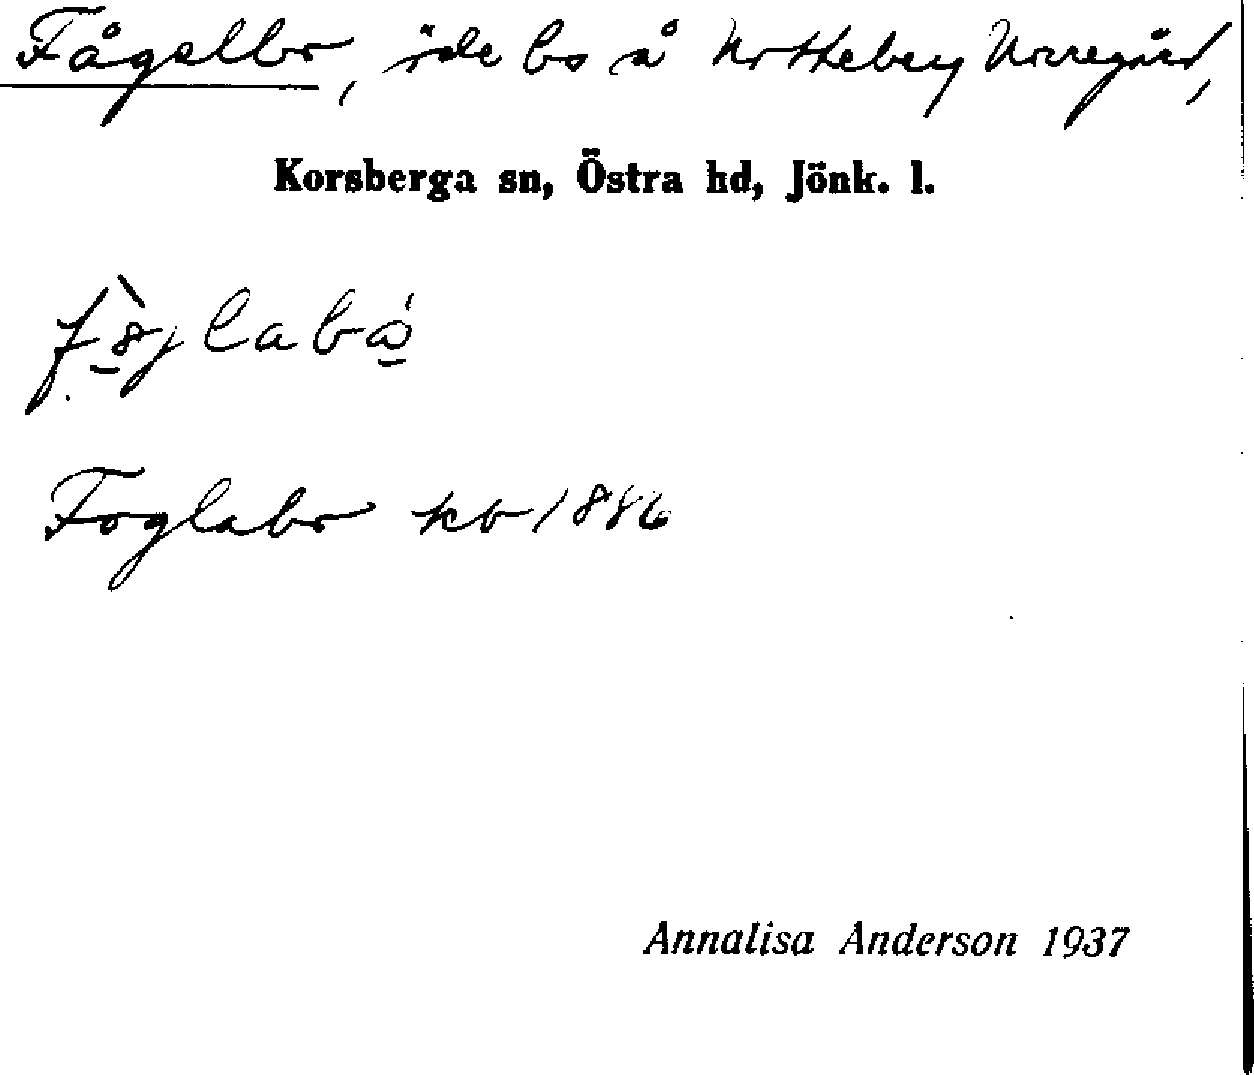 Fågelbo, öde bs å Kotteberg Norregård,
Korsberga sn, Östra hd, Jönk. l.
Foglabo kb 1886
Annalisa Anderson 1937